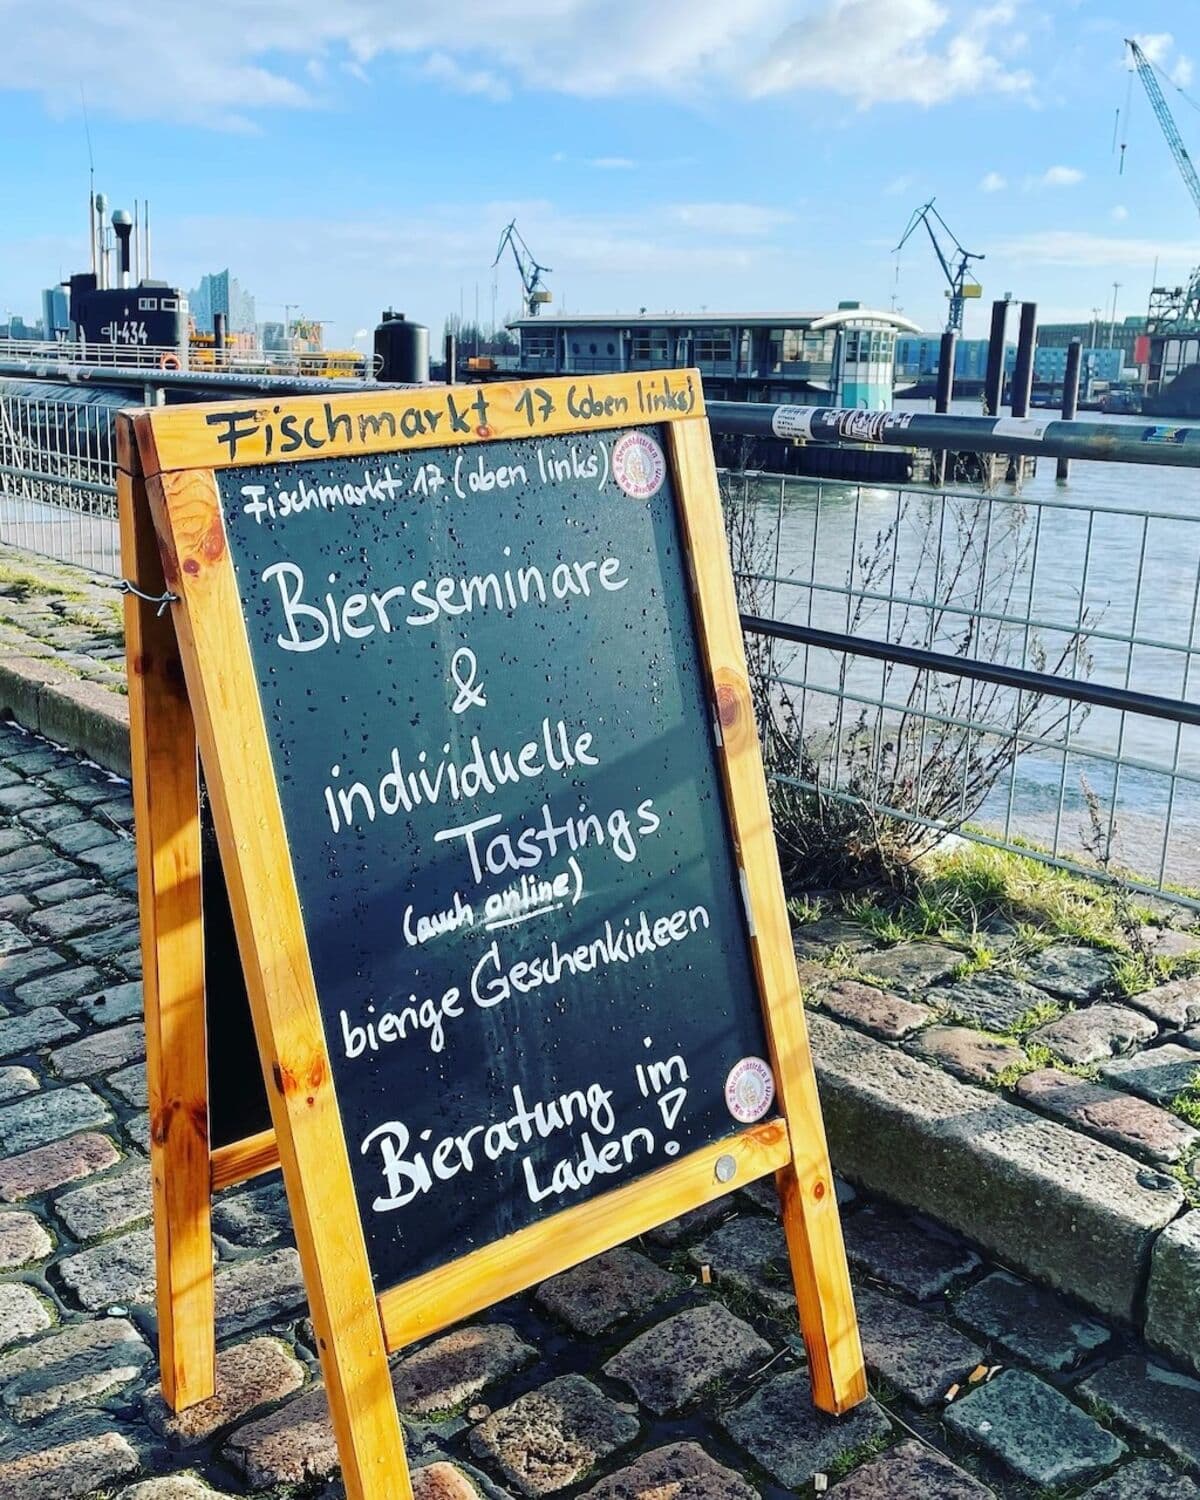 U-434
Fischmarkt 17 (oben links)
Fischmarkt 17 (oben links)
Bierseminare
&
individuelle
Tastings
(auch online)
bierige Geschenkideen
Bieratung im
Laden!